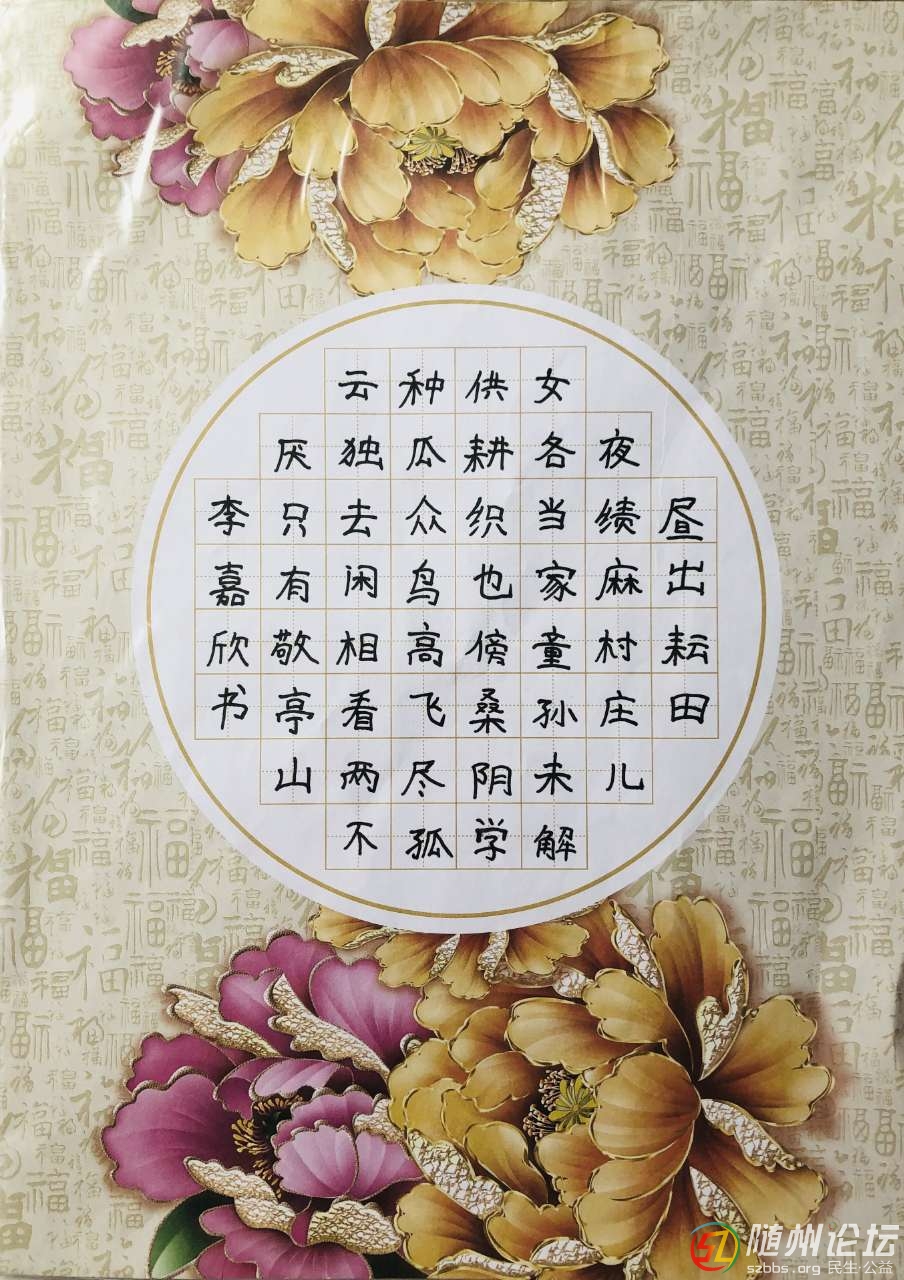 昼出耘田
夜绩麻村庄儿
女各当家童孙未解
供耕织也傍桑阴学
种瓜众鸟高飞尽孤
云独去闲相看两不
厌只有敬亭山
李嘉欣书
随州论坛
szbbs.org 民生·公益